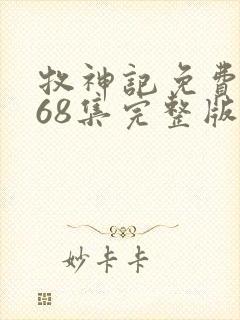 牧神記免費
68集完整版
妙卡卡